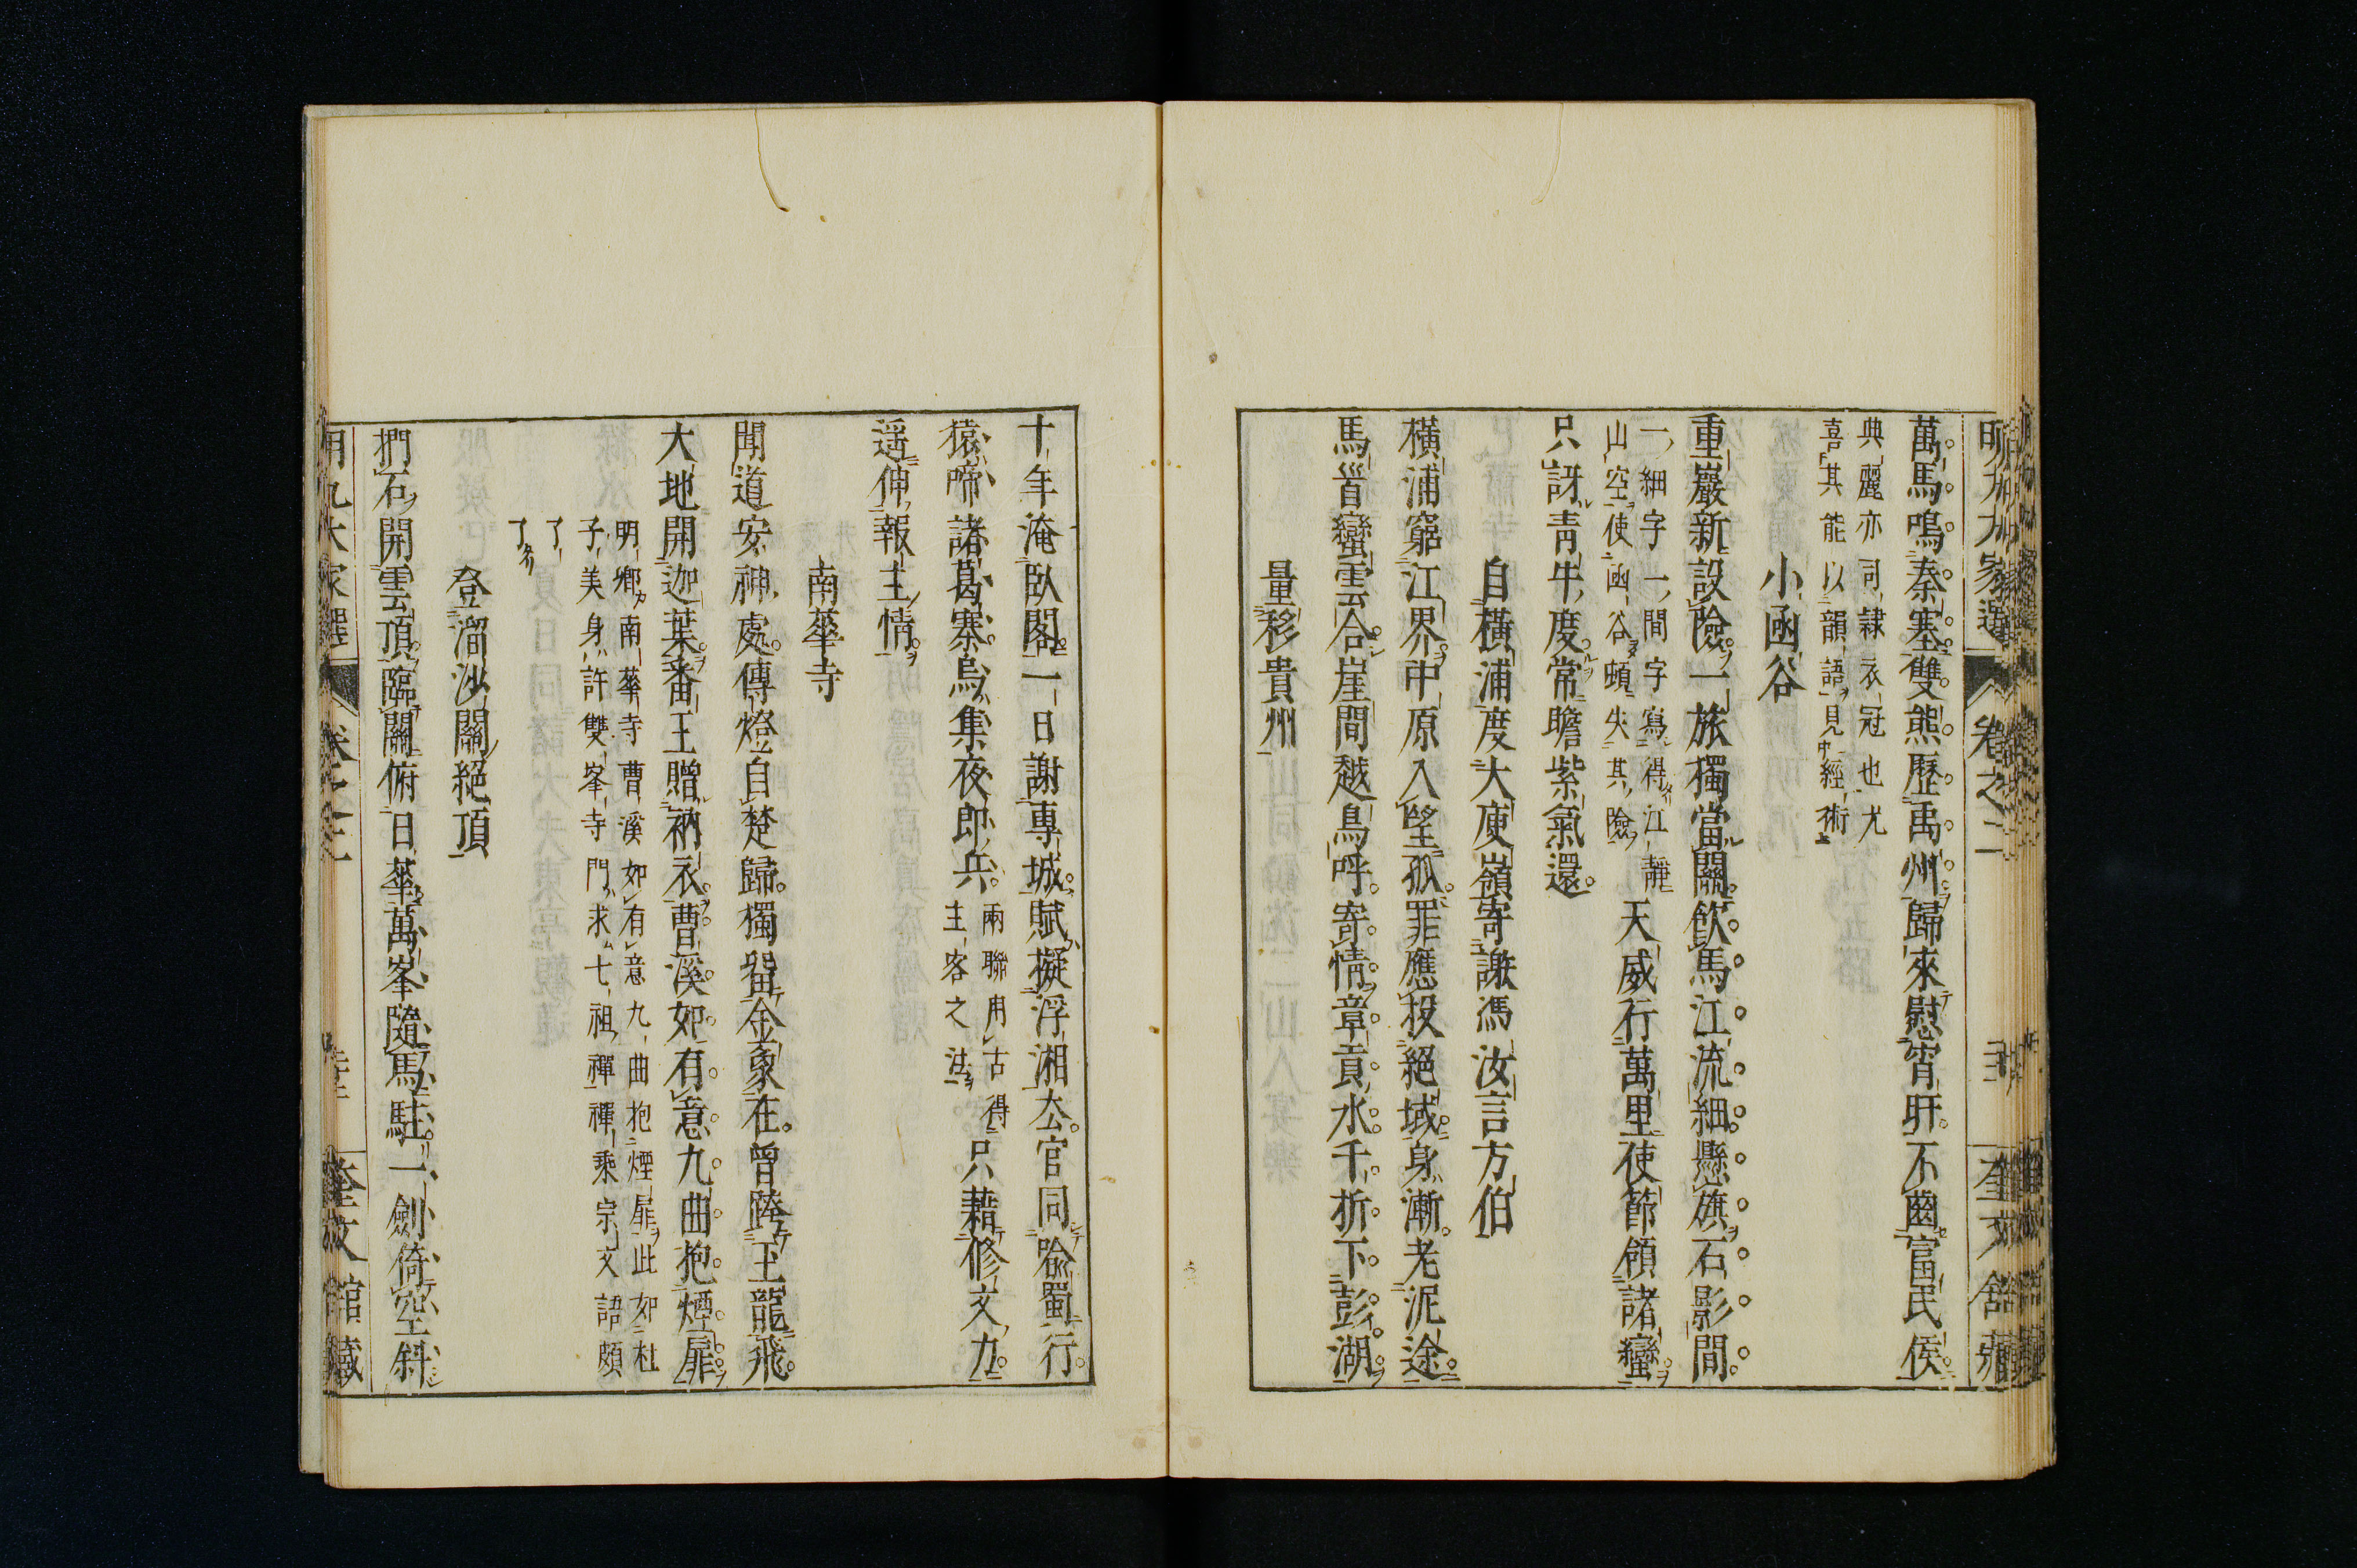 萬馬鳴秦塞雙熊歷禹州歸來慰宵旰不齒富民侯
典麗亦同隸衣冠也尤
喜其能以韻語見經術
小函谷
重巖新設險一旅獨當關飲馬江流細懸旗石影間
一細字一間字寫得江靜
山空使函谷頓失其險
天威行萬里使節領諸蠻
只訝青牛度常瞻紫氣還
自橫浦度大庾嶺寄謝馮汝言方伯
橫浦窮江界中原入望孤罪應投絕域身漸老泥途
馬首蠻雲合崖間越鳥呼寄情章貢水千折下彭湖
量移貴州
十年淹臥閣一日謝專城賦擬浮湘去官同喻蜀行
猿啼諸葛寨烏集夜郎兵
兩聯用古得
主客之法
只藉修文力
遥伸報主情
南華寺
聞道安神處傳燈自楚歸獨留金象在曾跨玉龍飛
大地開迦葉番王贈衲衣曹溪如有意九曲抱煙扉
明卿南華寺曹溪如有意九曲抱煙扉此如杜
子美身許雙峯寺門求七祖禪禪乘宗文語頗
了
了
登溜沙關絕頂
捫石開雲頂臨關俯日華萬峯隨馬駐一劍倚空斜
卷之二
奎文館藏